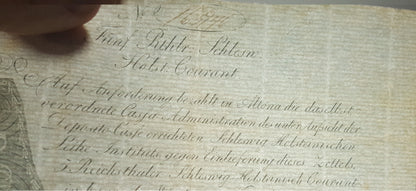 No
Fünf Rthlr. Schlesw.
Holst. Courant.
Auf Anforderung bezahlt in Altona die daselbst
verordnete Cassa Administration des unter Aufsicht der
Deposito Casse errichteten Schleswig Holsteinischen
Leihe-Instituts gegen Einlieferung dieses Zettels
5 Reichsthaler Schleswig Holsteinisch Courant